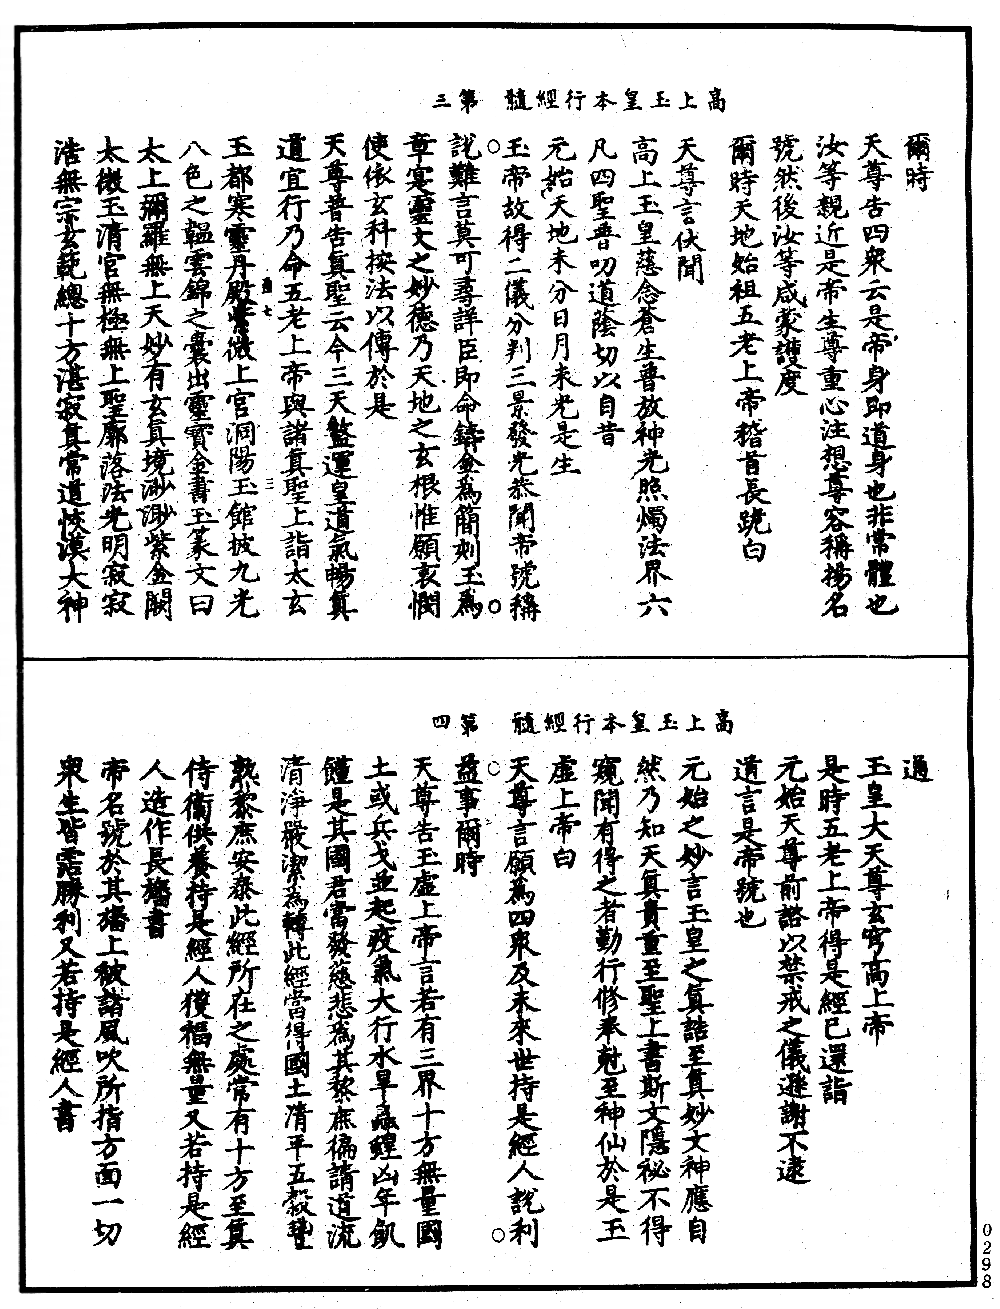 高上玉皇本行經髓　第三
爾時
天尊告四衆云是帝身即道身也非常體也
汝等親近是帝生尊重心注想尊容稱揚名
號然後汝等咸蒙護度
爾時天地始祖五老上帝稽首長跪白
天尊言伏聞
高上玉皇慈念蒼生普放神光照燭法界六
凡四聖普叨道蔭切以自昔
元始天地未分日月未光是生
玉帝故得二儀分判三景發光恭聞帝號稱
說難言莫可尋詳臣即命鑄金爲簡刻玉爲
章寔靈文之妙德乃天地之玄根惟願哀憫
使依玄科按法以傳於是
天尊普告眞聖云今三天盤運皇道氣暢眞
道宜行乃命五老上帝與諸眞聖上詣太玄
玉都寒靈丹殿紫微上宮洞陽玉館披九光
八色之韞雲錦之囊出靈寶金書玉篆文曰
太上彌羅無上天妙有玄眞境渺渺紫金闕
太微玉清宮無極無上聖廓落法光明寂寂
浩無宗玄範總十方湛寂眞常道恢漠大神
高上玉皇本行經髓　第四
通
玉皇大天尊玄穹高上帝
是時五老上帝得是經已還詣
元始天尊前諮以禁戒之儀遜謝不逮
道言是帝號也
元始之妙言玉皇之眞誥至眞妙文神應自
然乃知天眞貴重至聖上書斯文隱祕不得
窺聞有得之者勤行修奉尅至神仙於是玉
虛上帝白
天尊言願爲四衆及未來世持是經人說利
益事爾時
天尊告玉虛上帝言若有三界十方無量國
土或兵戈並起疫氣大行水旱蟲蝗凶年飢
饉是其國君當發慈悲爲其黎庶徧請道流
清淨嚴潔爲轉此經當得國土清平五穀豐
熟黎庶安泰此經所在之處常有十方至眞
侍衞供養持是經人獲福無量又若持是經
人造作長旛書
帝名號於其旛上被諸風吹所指方面一切
衆生皆霑勝利又若持是經人書
0298